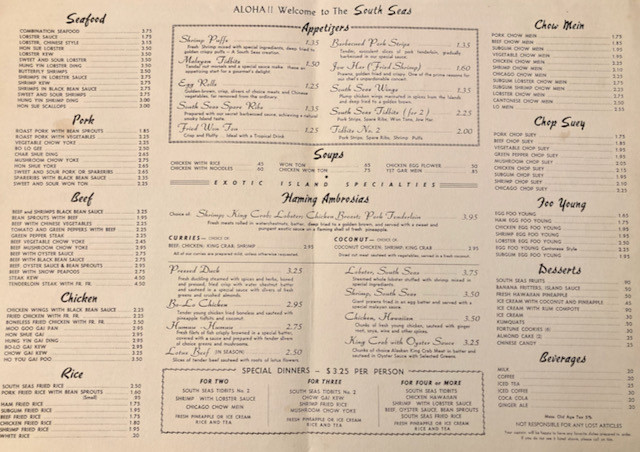 ALOHA!! Welcome to The South Seas
Seafood
COMBINATION SEAFOOD 3.75
LOBSTER SAUCE 2.75
LOBSTER, CHINESE STYLE 3.15
HON SUE LOBSTER 3.50
LOBSTER KEW 3.50
SWEET AND SOUR LOBSTER 3.50
HUNG YIN LOBSTER DING 3.50
BUTTERFLY SHRIMPS 2.50
SHRIMPS IN LOBSTER SAUCE
SHRIMP KEW
SHRIMPS IN BLACK BEAN SAUCE 2.75
SWEET AND SOUR SHRIMP
HUNG YIN SHRIMP DING
HON SUE SCALLOPS
Pork
ROAST PORK WITH BEAN SPROUTS 1.85
ROAST PORK WITH VEGETABLES
VEGETABLE CHOW YOKE 2.25
BO LO GEE 2.50
CHAR SHUE DING 2.65
MUSHROOM CHOW YOKE 2.75
HON SHUE YOKE 2.65
SWEET AND SOUR PORK OR SPARERIBS 2.25
SPARERIBS WITH BLACK BEAN SAUCE 2.25
SWEET AND SOUR WON TON 2.25
Beef
BEEF and SHRIMPS BLACK BEAN SAUCE
BEAN SPROUTS WITH BEEF 1.95
BEEF WITH CHINESE VEGETABLES 2.25
TOMATO AND GREEN PEPPERS WITH BEEF 2.25
GREEN PEPPER STEAK 2.25
BEEF VEGETABLE CHOW YOKE 2.45
BEEF MUSHROOM CHOW YOKE 2.95
BEEF WITH OYSTER SAUCE 2.75
BEEF WITH BLACK BEAN SAUCE 2.75
BEEF OYSTER SAUCE & BEAN SPROUTS 2.95
BEEF WITH SNOW PEAPODS 2.75
STEAK KEW 4.50
TENDERLOIN STEAK WITH FR. FR. 4.50
Chicken
CHICKEN WINGS WITH BLACK BEAN SAUCE 2.25
FRIED CHICKEN WITH FR. FR. 2.25
BONELESS FRIED CHICKEN WITH FR. FR. 2.50
MOO GOO GAI PAN 2.95
HON SHUE GAI 2.95
HUNG YIN GAI DING 2.95
BO-LO GAI KEW 2.95
CHOW GAI KEW 3.25
HO YOU GAI POO 3.50
Rice
SOUTH SEAS FRIED RICE 2.50
PORK FRIED RICE WITH BEAN SPROUTS 1.60
(Small) .95
HAM FRIED RICE 1.75
SUBGUM FRIED RICE 1.95
BEEF FRIED RICE 1.75
CHICKEN FRIED RICE 1.80
SHRIMP FRIED RICE 1.95
WHITE RICE .20
Appetizers
Shrimp Puffs 1.35
Fresh Shrimp mixed with special ingredients, deep fried to golden crispy puffs - A South Seas creation.
Malayan Tidbits 1.50
Tender cut morsels and a special sauce make these an appetizing start for a gourmet's delight.
Egg Rolls 1.25
Golden-brown, crisp, slivers of choice meats and Chinese vegetables, far removed from the ordinary.
South Seas Spare Ribs 1.35
Prepared with our secret barbecued sauce, achieving a natural smoky island taste.
Fried Won Ton 1.25
Crisp and Puffy . . . Ideal with a Tropical Drink
Barbecued Pork Strips 1.35
Tender, succulent slices of pork tenderloin, gradually barbecued in our special sauce.
Jou Har (Fried Shrimp) 1.60
Prawns, golden fried and crispy. One of the prime reasons for our chef's unprecedented concert.
South Seas Wings 1.35
Plump chicken wings marinated in spices from the Islands and deep fried to a golden brown.
South Seas Tidbits (for 2) 2.25
Pork Strips, Spare Ribs, Won Tons, Jou Har.
Tidbits No. 2 2.00
Pork Strips, Spare Ribs, Shrimp Puffs
Soups
CHICKEN WITH RICE .45
CHICKEN WITH NOODLES .60
WON TON .65
CHICKEN WON TON .75
CHICKEN EGG FLOWER .50
YET GAR MEIN .95
EXOTIC ISLAND SPECIALTIES
Flaming Ambrosias
Choice of: Shrimp; King Crab; Lobster; Chicken Breast; Pork Tenderloin 3.95
Fresh meats rolled in water-chestnut batter, deep fried to a golden brown, and served with a sweet and pungent exotic sauce on a flaming shell of fresh pineapple.
CURRIES — CHOICE OF
BEEF, CHICKEN, KING CRAB, SHRIMP 2.95
All of our curries are prepared mild, unless otherwise requested.
COCONUT — CHOICE OF
COCONUT CHICKEN, SHRIMP, KING CRAB 2.95
Diced nut meat sauteed with vegetables, served in a fresh coconut.
Pressed Duck 3.25
Fresh duckling steamed with spices and herbs, boned and pressed, fried crisp with water chestnut batter and sauteed in a special sauce with slivers of fresh cooked and crushed almonds.
Bo-Lo Chicken 2.95
Tender young chicken fried boneless and sauteed with pineapple tidbits.
Humua - Humua 2.75
Fresh fillets of fish crisply browned in a special batter, covered with a sauce and prepared with tender dinners of choice greens and mushrooms.
Lotus Beef (IN SEASON) 2.50
Slices of tender beef sauteed with roots of lotus flowers.
Lobster, South Seas 3.75
Steamed whole lobster stuffed with shrimp mixed in special ingredients.
Shrimp, South Seas 3.50
Giant prawns fried in an egg batter and served with a special sauce.
Chicken, Hawaiian 3.50
Chunks of fresh young chicken, sauteed with ginger root, soya, wine and other spices.
King Crab with Oyster Sauce 3.25
Chunks of choice Alaskan King Crab Meat in butter and sauteed in Oyster Sauce with Selected Greens.
SPECIAL DINNERS – $3.25 PER PERSON
FOR TWO
SOUTH SEAS TIDBITS No. 2
SHRIMP WITH LOBSTER SAUCE
CHICAGO CHOW MEIN
FRESH PINEAPPLE OR ICE CREAM
RICE AND TEA
FOR THREE
SOUTH SEAS TIDBITS No. 2
CHOW GAI KEW
SHRIMP FRIED RICE
MUSHROOM CHOW YOKE
FRESH PINEAPPLE OR ICE CREAM
RICE AND TEA
FOR FOUR or MORE
SOUTH SEAS TIDBITS
CHICKEN HAWAIIAN
SHRIMP WITH LOBSTER SAUCE
BEEF, OYSTER SAUCE, BEAN SPROUTS
SOUTH SEAS FRIED RICE
FRESH PINEAPPLE OR ICE CREAM
RICE AND TEA
Chow Mein
PORK CHOW MEIN 1.75
BEEF CHOW MEIN
SUBGUM CHOW MEIN 1.95
VEGETABLE CHOW MEIN
CHICKEN CHOW MEIN
SHRIMP CHOW MEIN
CHICAGO CHOW MEIN
SUBGUM LOBSTER CHOW MEIN
SUBGUM CHICKEN CHOW MEIN
LOBSTER CHOW MEIN
CANTONESE CHOW MEIN
LO MEIN
Chop Suey
PORK CHOP SUEY
BEEF CHOP SUEY
VEGETABLE CHOP SUEY
GREEN PEPPER CHOP SUEY
MUSHROOM CHOP SUEY
CHICKEN CHOP SUEY
SUBGUM CHOP SUEY
SHRIMP CHOP SUEY
CHICAGO CHOP SUEY
Foo Young
EGG FOO YOUNG 1.65
HAM EGG FOO YOUNG 1.75
CHICKEN EGG FOO YOUNG
SHRIMP EGG FOO YOUNG
LOBSTER EGG FOO YOUNG
EGG FOO YOUNG Cantonese Style
SUBGUM EGG FOO YOUNG
Desserts
SOUTH SEAS FRUITS .90
BANANA FRITTERS, ISLAND SAUCE
FRESH HAWAIIAN PINEAPPLE .50
ICE CREAM WITH COCONUT AND PINEAPPLE .45
ICE CREAM WITH RUM COMPOTE
ICE CREAM .30
KUMQUATS
FORTUNE COOKIES (6) .30
ALMOND CAKE (3)
CHINESE CANDY
Beverages
MILK .20
COFFEE .20
ICED TEA .20
ICED COFFEE .20
COCA COLA .20
GINGER ALE .20
Mass. Old Age Tax 5%
NOT RESPONSIBLE FOR ANY LOST ARTICLES
Your captain will be happy to have any favorite dishes prepared to order if you do not see it listed above, please call on him.